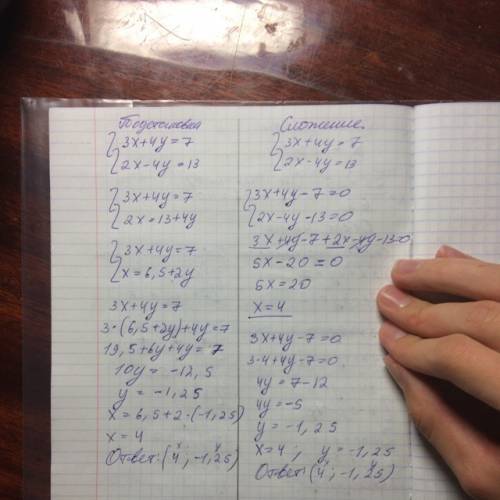 Подстановка
3x+4y=7
2x-4y=13
3x+4y=7
2x=13+4y
3x+4y=7
x=6,5+2y
3x+4y=7
3·(6,5+2y)+4y=7
19,5+6y+4y=7
10y=-12,5
y=-1,25
x=6,5+2·(-1,25)
x=4
Ответ: (4; -1,25)
Сложение.
3x+4y=7
2x-4y=13
3x+4y-7=0
2x-4y-13=0
3x+4y-7+2x-4y-13=0
5x-20=0
5x=20
x=4
3x+4y-7=0
3·4+4y-7=0
4y=7-12
4y=-5
y=-1,25
x=4, y=-1,25
Ответ: (4; -1,25)